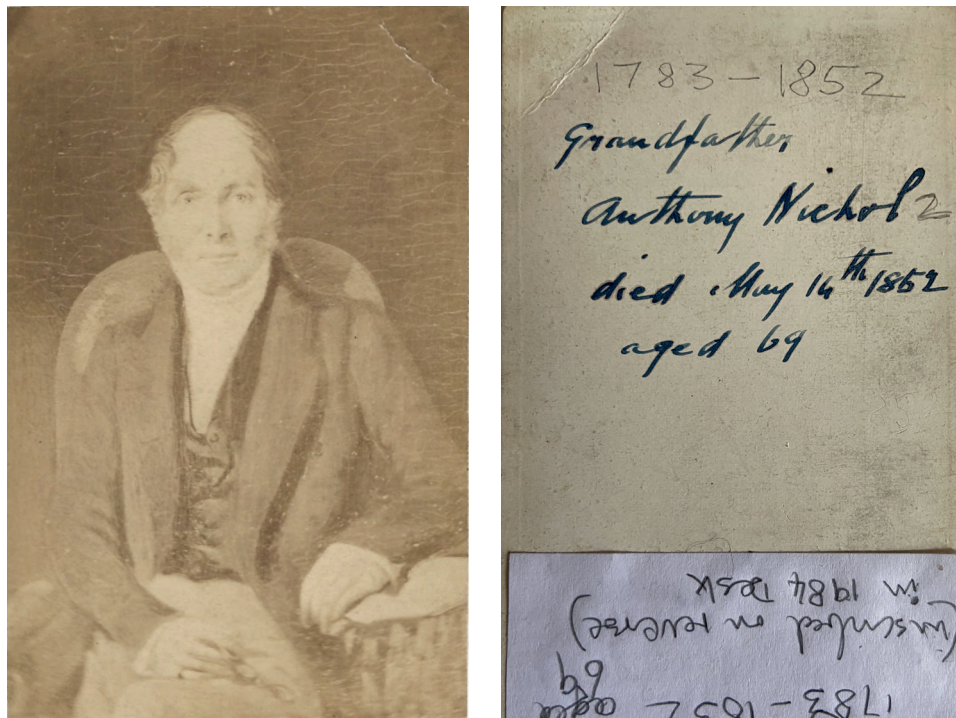 1783 - 1852
Grandfather
Anthony Nichol 2
died May 14th 1852
aged 69
1783 - 1852 aged
69
(inscribed on reverse)
in 1984 Desk